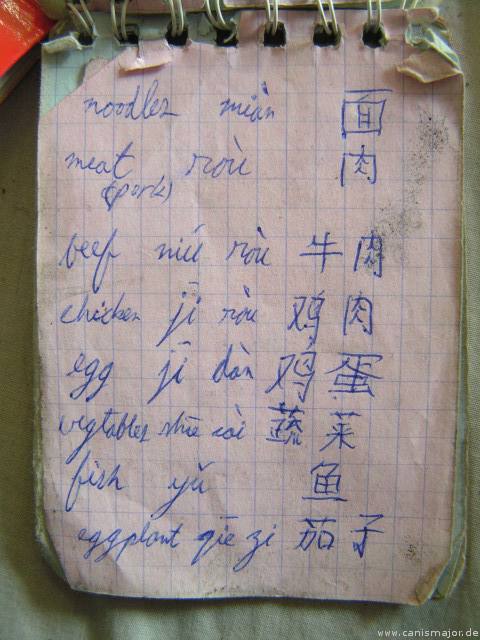 noodles miàn 面
meat ròu 肉
(pork)
beef niú ròu 牛肉
chicken jī ròu 鸡肉
egg jī dàn 鸡蛋
vegtables shū cài 蔬菜
fish yú 鱼
eggplant qié zi 茄子
www.canismajor.de